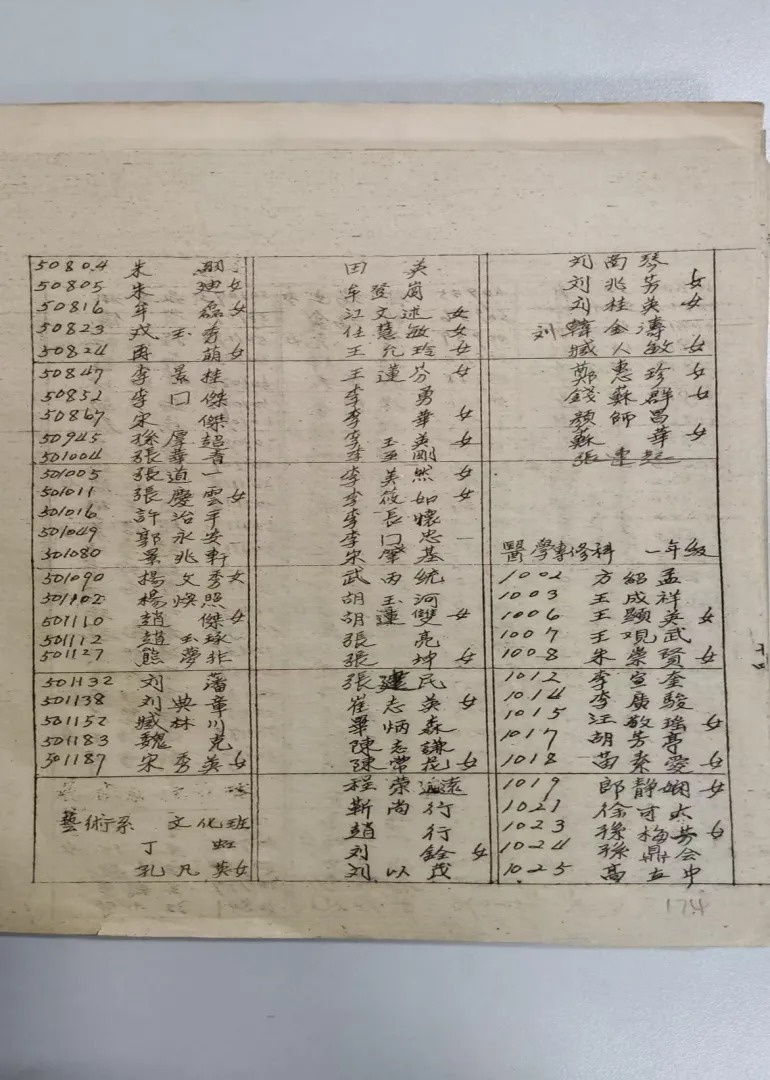 50804 朱
50805 朱 迪 女
50816 牟 磊 女
50823 戎 玉 秀
50824 冉 萌 女
50847 李 景 桂
50852 李 口 傑
50867 宋 傑
50945 孫 厚 超
501004 張 華 青
501005 張 道 一
501011 張 慶 雲 女
501016 許 治 平
501049 郭 永 安
501080 景 兆 軒
501090 楊 文 秀 女
501102 楊 煥 照
501110 趙 傑 女
501112 趙 玉 琢
501127 熊 夢 非
501132 刘 藩
501138 刘 典 章
501152 臧 林 川
501183 魏 克
501187 宋 秀 英 女
藝術系 文化班
丁 虹
孔 凡 英 女
田 英
牟 登 崗
江 文 述 女
任 慧 敏 女
王 允 玲 女
王 蓮 芬 女
李 勇
李 華 女
李 玉 英 女
李 亞 剛
李 英 然 女
李 筱 如 女
李 長 懷
李 口 忠
宋 肇 基
武 丙 統
胡 玉 河
胡 蓮 雙 女
張 亮
張 坤 女
張 建 民
崔 志 英 女
畢 炳 森
陳 志 謙
陳 常 花 女
程 榮 遠
靳 尚 行
趙 行
刘 銓 女
刘 以 茂
刘 尚 琴
刘 兆 芳 女
刘 桂 英 女
刘 韓 金 濤
臧 人 敏 女
鄭 惠 珍 女
錢 蘇 群 女
顏 師 昌
蘇 華 女
張 連 起
醫學專修科 一年級
1002 方 紹 孟
1003 王 成 祥
1006 王 顯 英 女
1007 王 观 武
1008 朱 崇 賢 女
1012 李 宣 奎
1014 李 廣 駿
1015 汪 敬 瑶 女
1017 胡 芳 亭
1018 苗 秦 愛 女
1019 郎 静 娴 女
1021 徐 可 大
1023 孫 梅 芳 女
1024 孫 鼎 会
1025 高 立 中
174